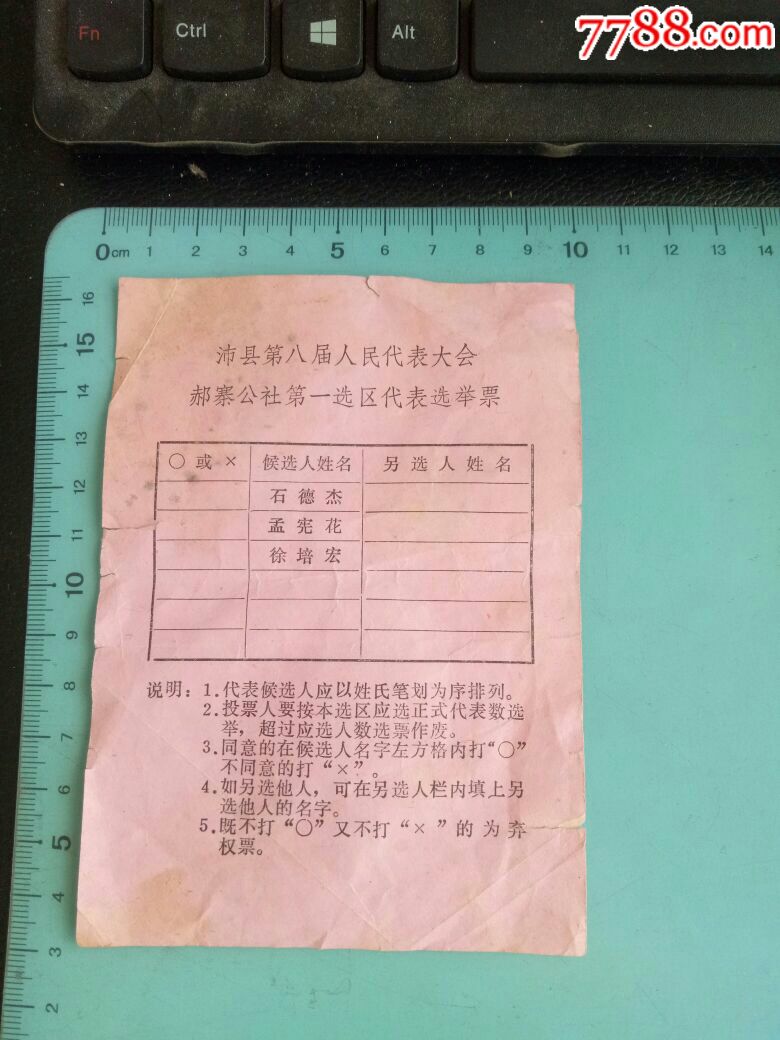 7788.com
Fn Ctrl Alt
0cm 1 2 3 4 5 6 7 8 9 10 11 12 13 14
16
15
14
13
12
11
10
9
8
7
6
5
4
3
2
沛县第八届人民代表大会
郝寨公社第一选区代表选举票
○或× 候选人姓名 另选人姓名
石德杰
孟宪花
徐培宏
说明：1.代表候选人应以姓氏笔划为序排列。
2.投票人要按本选区应选正式代表数选
举，超过应选人数选票作废。
3.同意的在候选人名字左方格内打“○”
不同意的打“×”。
4.如另选他人，可在另选人栏内填上另
选他人的名字。
5.既不打“○”又不打“×”的为弃
权票。